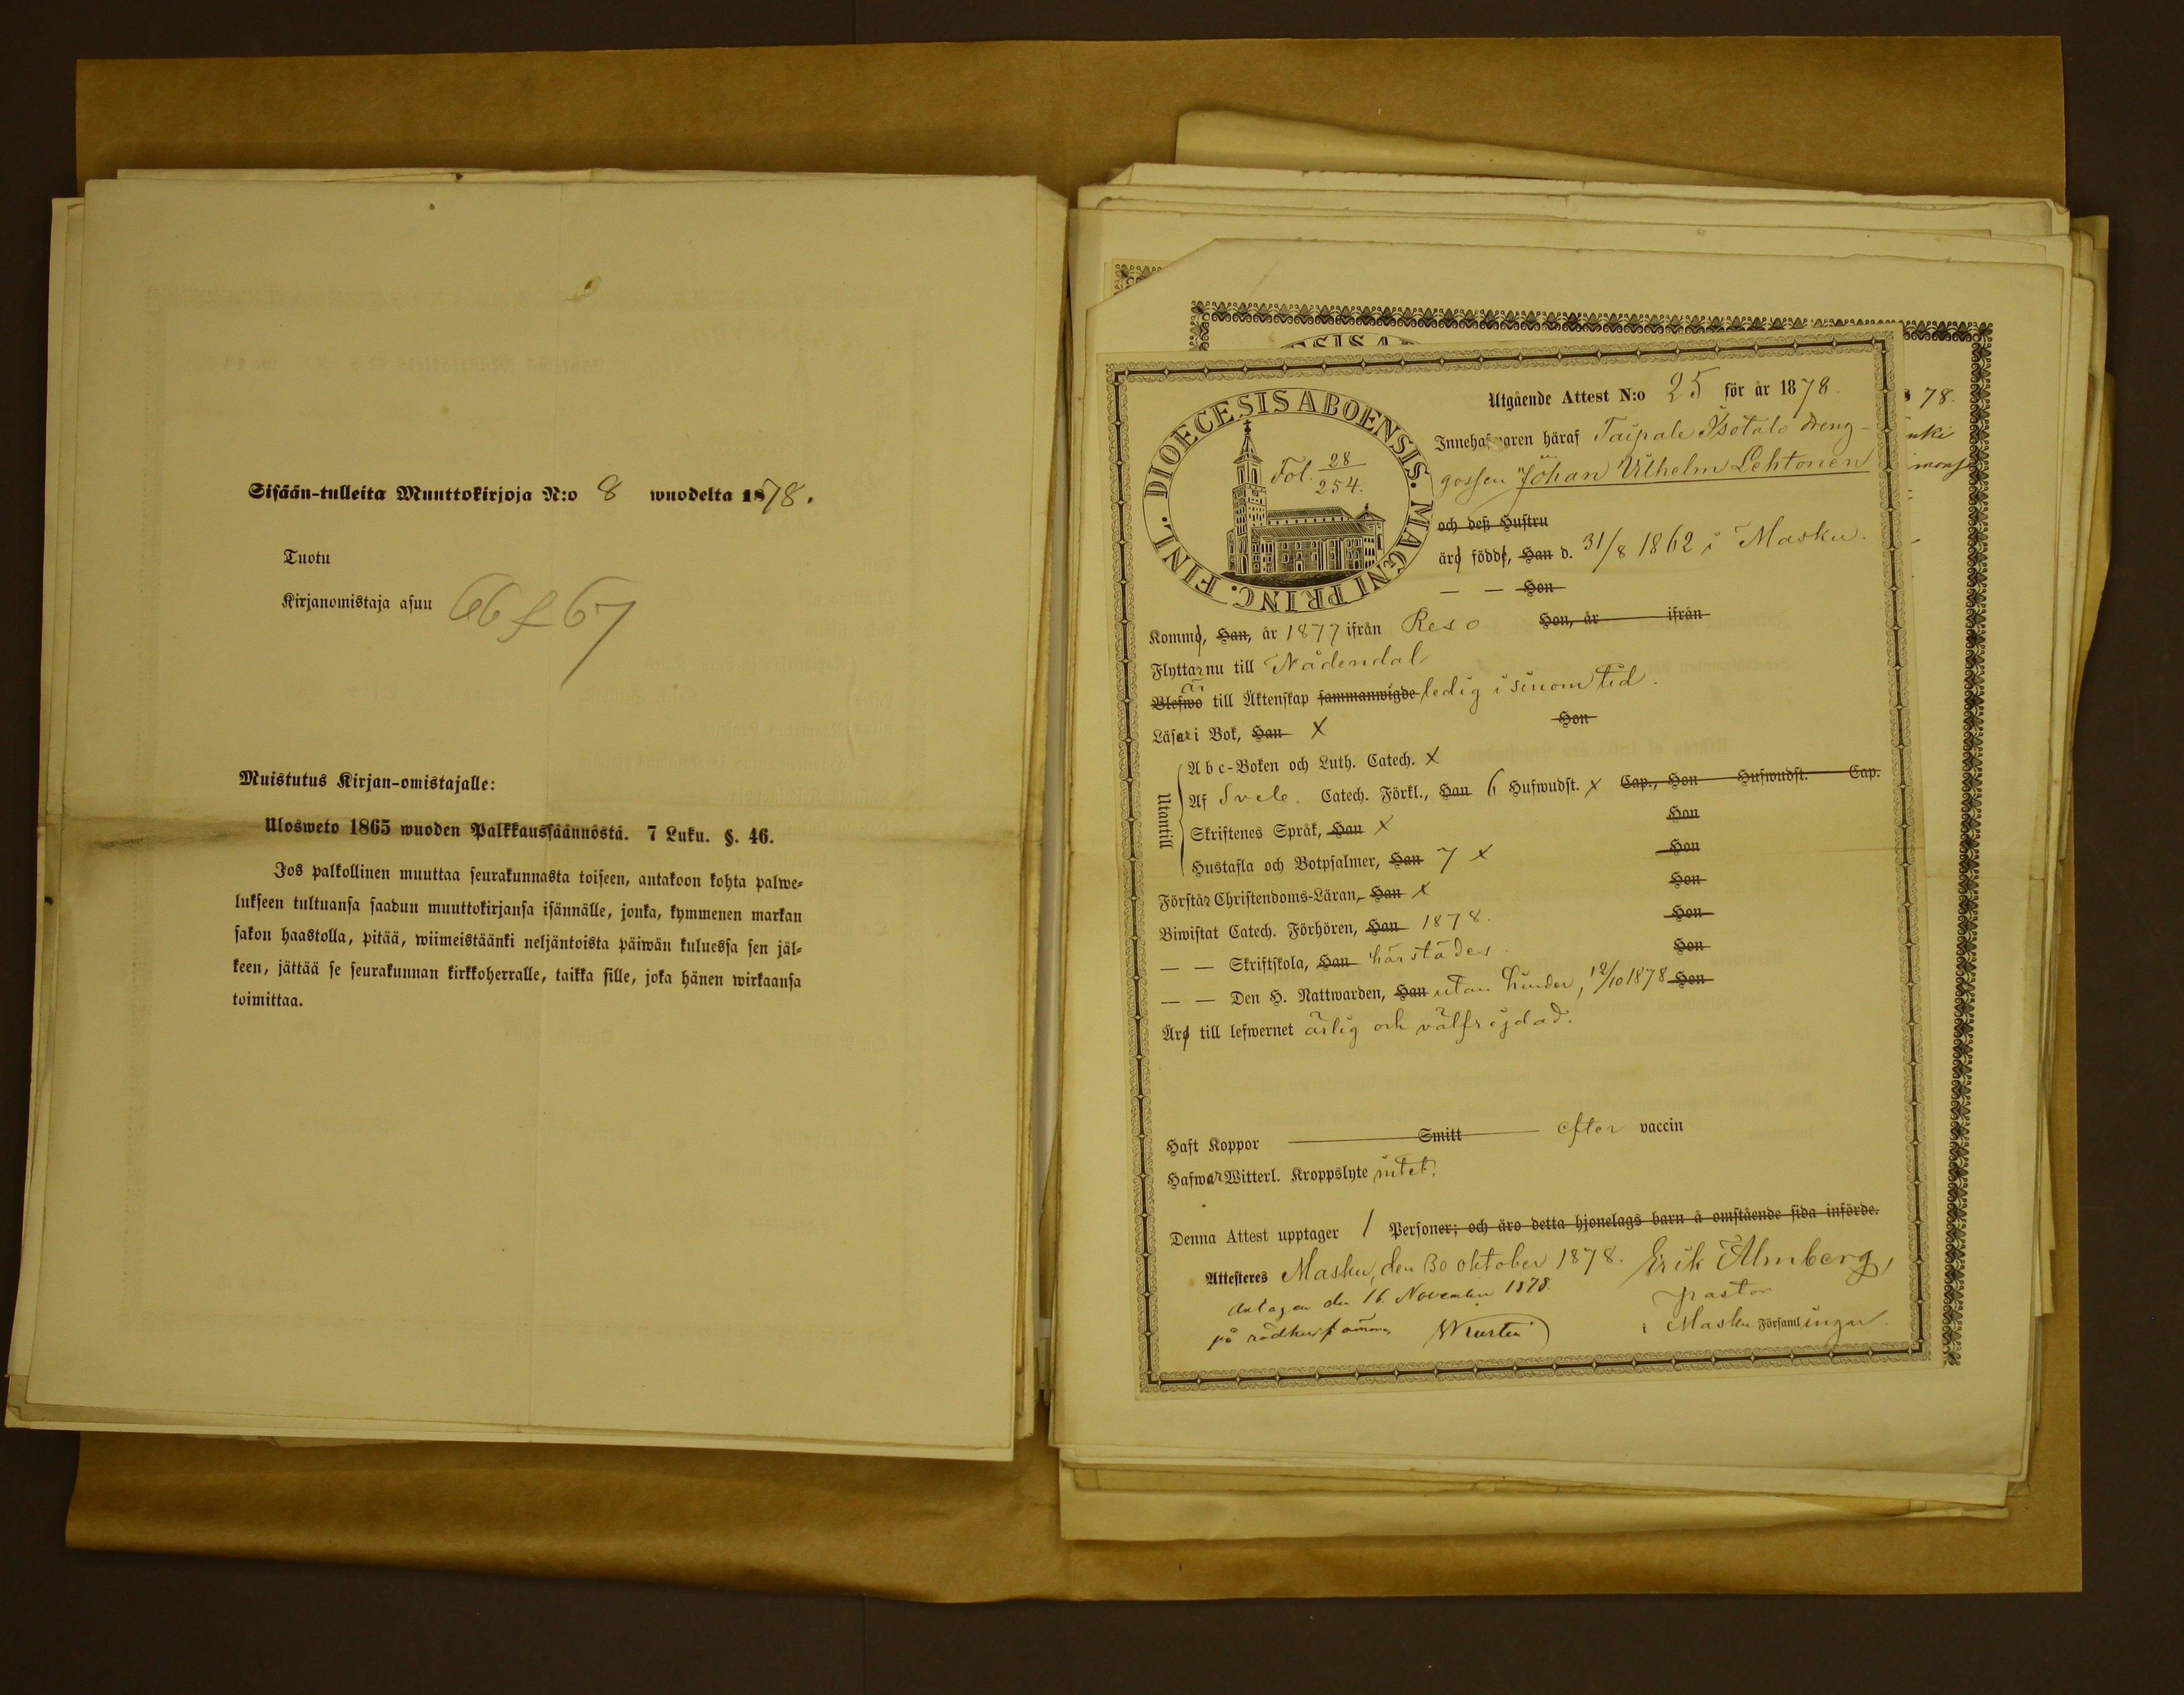 Sisään-tulleita Muuttokirjoja N:o 8 wuodelta 1878.
Tuotu
Kirjanomistaja asuu 66 f 67
Muistutus Kirjan-omistajalle:
Ulosweto 1865 wuoden Palkkaussäännöstä. 7 Luku. §. 46.
Jos palkollinen muuttaa seurakunnasta toiseen, antakoon kohta palwe-
lukseen tultuansa saadun muuttokirjansa isännälle, jonka, kymmenen markan
sakon haastolla, pitää, wiimeistäänki neljäntoista päiwän kuluessa sen jäl-
keen, jättää se seurakunnan kirkkoherralle, taikka sille, joka hänen wirkaansa
toimittaa.
DIOECESIS ABOENSIS. MAGNI PRINC. FINL.
Fol. 28
254.
Utgående Attest N:o 25 för år 1878.
Innehafwaren häraf Taipale Isotalo dreng-
gossen Johan Wilhelm Lehtonen
och deß Hustru
äro födde, Han d. 31/8 1862 i Masku.
— — Hon
Kommo, Han, år 1877 ifrån Reso Hon, år ifrån
Flyttar nu till Nådendal
är
Blefwo till Äktenskap sammanwigde ledig i sinom tid.
Läser i Bok, Han X Hon
Utantill
A b c-Boken och Luth. Catech. X
Af Svele. Catech. Förkl., Han 6 Hufwudst. X Cap., Hon Hufwudst. Cap.
Skriftenes Språk, Han X Hon
Hustafla och Botpsalmer, Han 7 X Hon
Förstår Christendoms-Läran, Han X Hon
Biwistat Catech. Förhören, Han 1878. Hon
— — Skriftskola, Han härstädes. Hon
— — Den H. Nattwarden, Han utan hinder, 12/10 1878 Hon
Äro till lefwernet ärlig och välfrejdad.
Haft Koppor Smitt efter vaccin
Hafwa Witterl. Kroppslyte intet.
Denna Attest upptager 1 Personer; och äro detta hjonelags barn å omstående sida införde.
Attesteres Masku, den 30 oktober 1878. Erik Almberg,
pastor
i Masku Församlingar.
Antagen den 16. November 1878.
på rådhus
78.